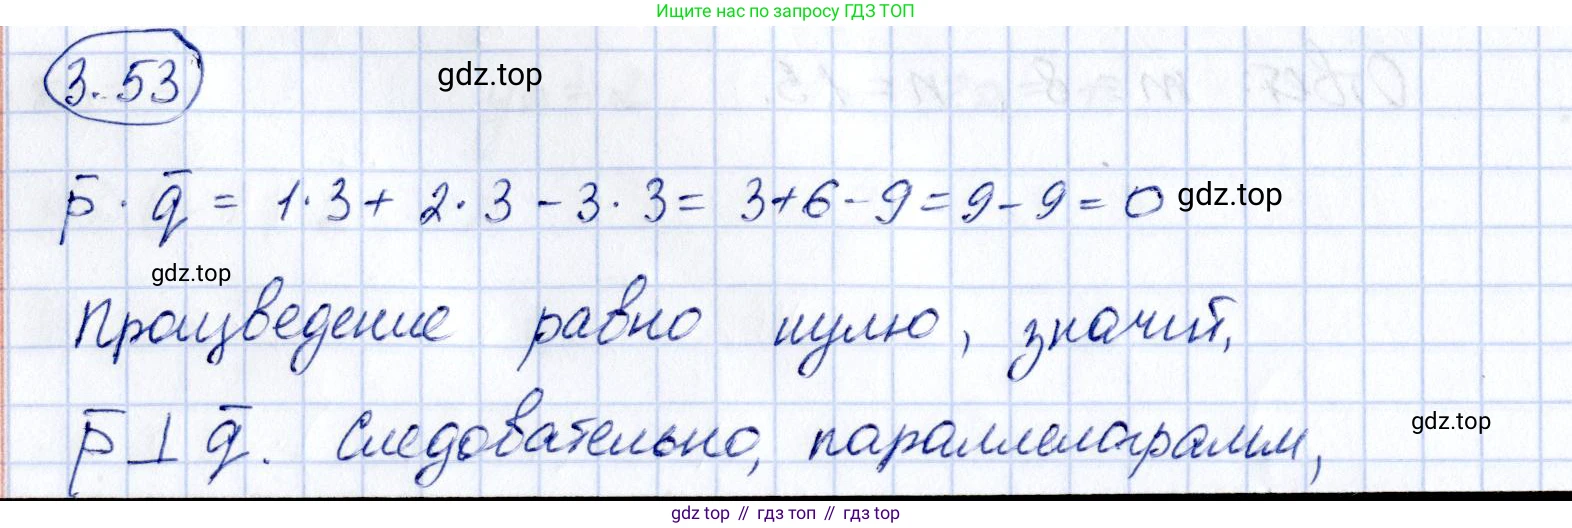 Ищите нас по запросу ГДЗ ТОП
3.53
gdz.top
p̄ · q̄ = 1·3 + 2·3 - 3·3 = 3+6-9 = 9-9 = 0
gdz.top
gdz.top
Произведение равно нулю, значит,
p̄ ⊥ q̄. Следовательно, параллелограмм,
gdz.top
gdz top // гдз топ // гдз top